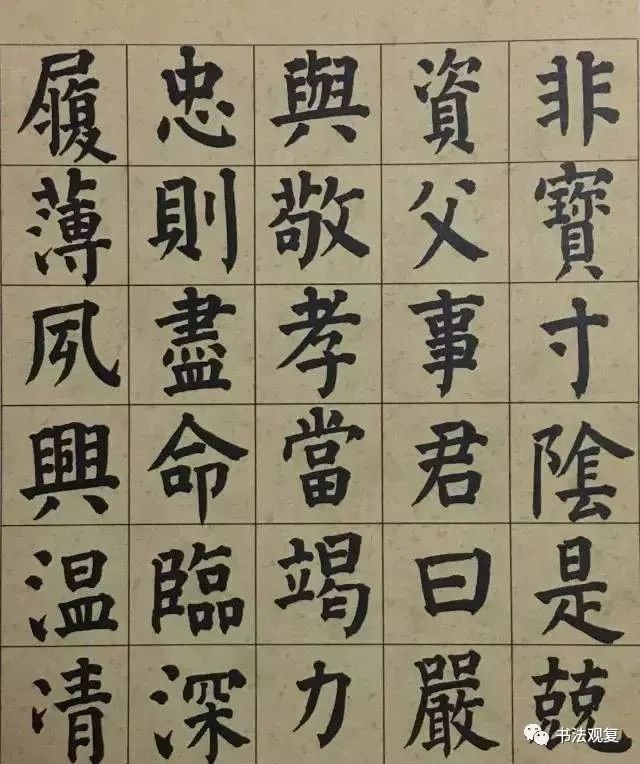 非寶寸陰是兢
資父事君曰嚴
與敬孝當竭力
忠則盡命臨深
履薄夙興温凊
书法观复